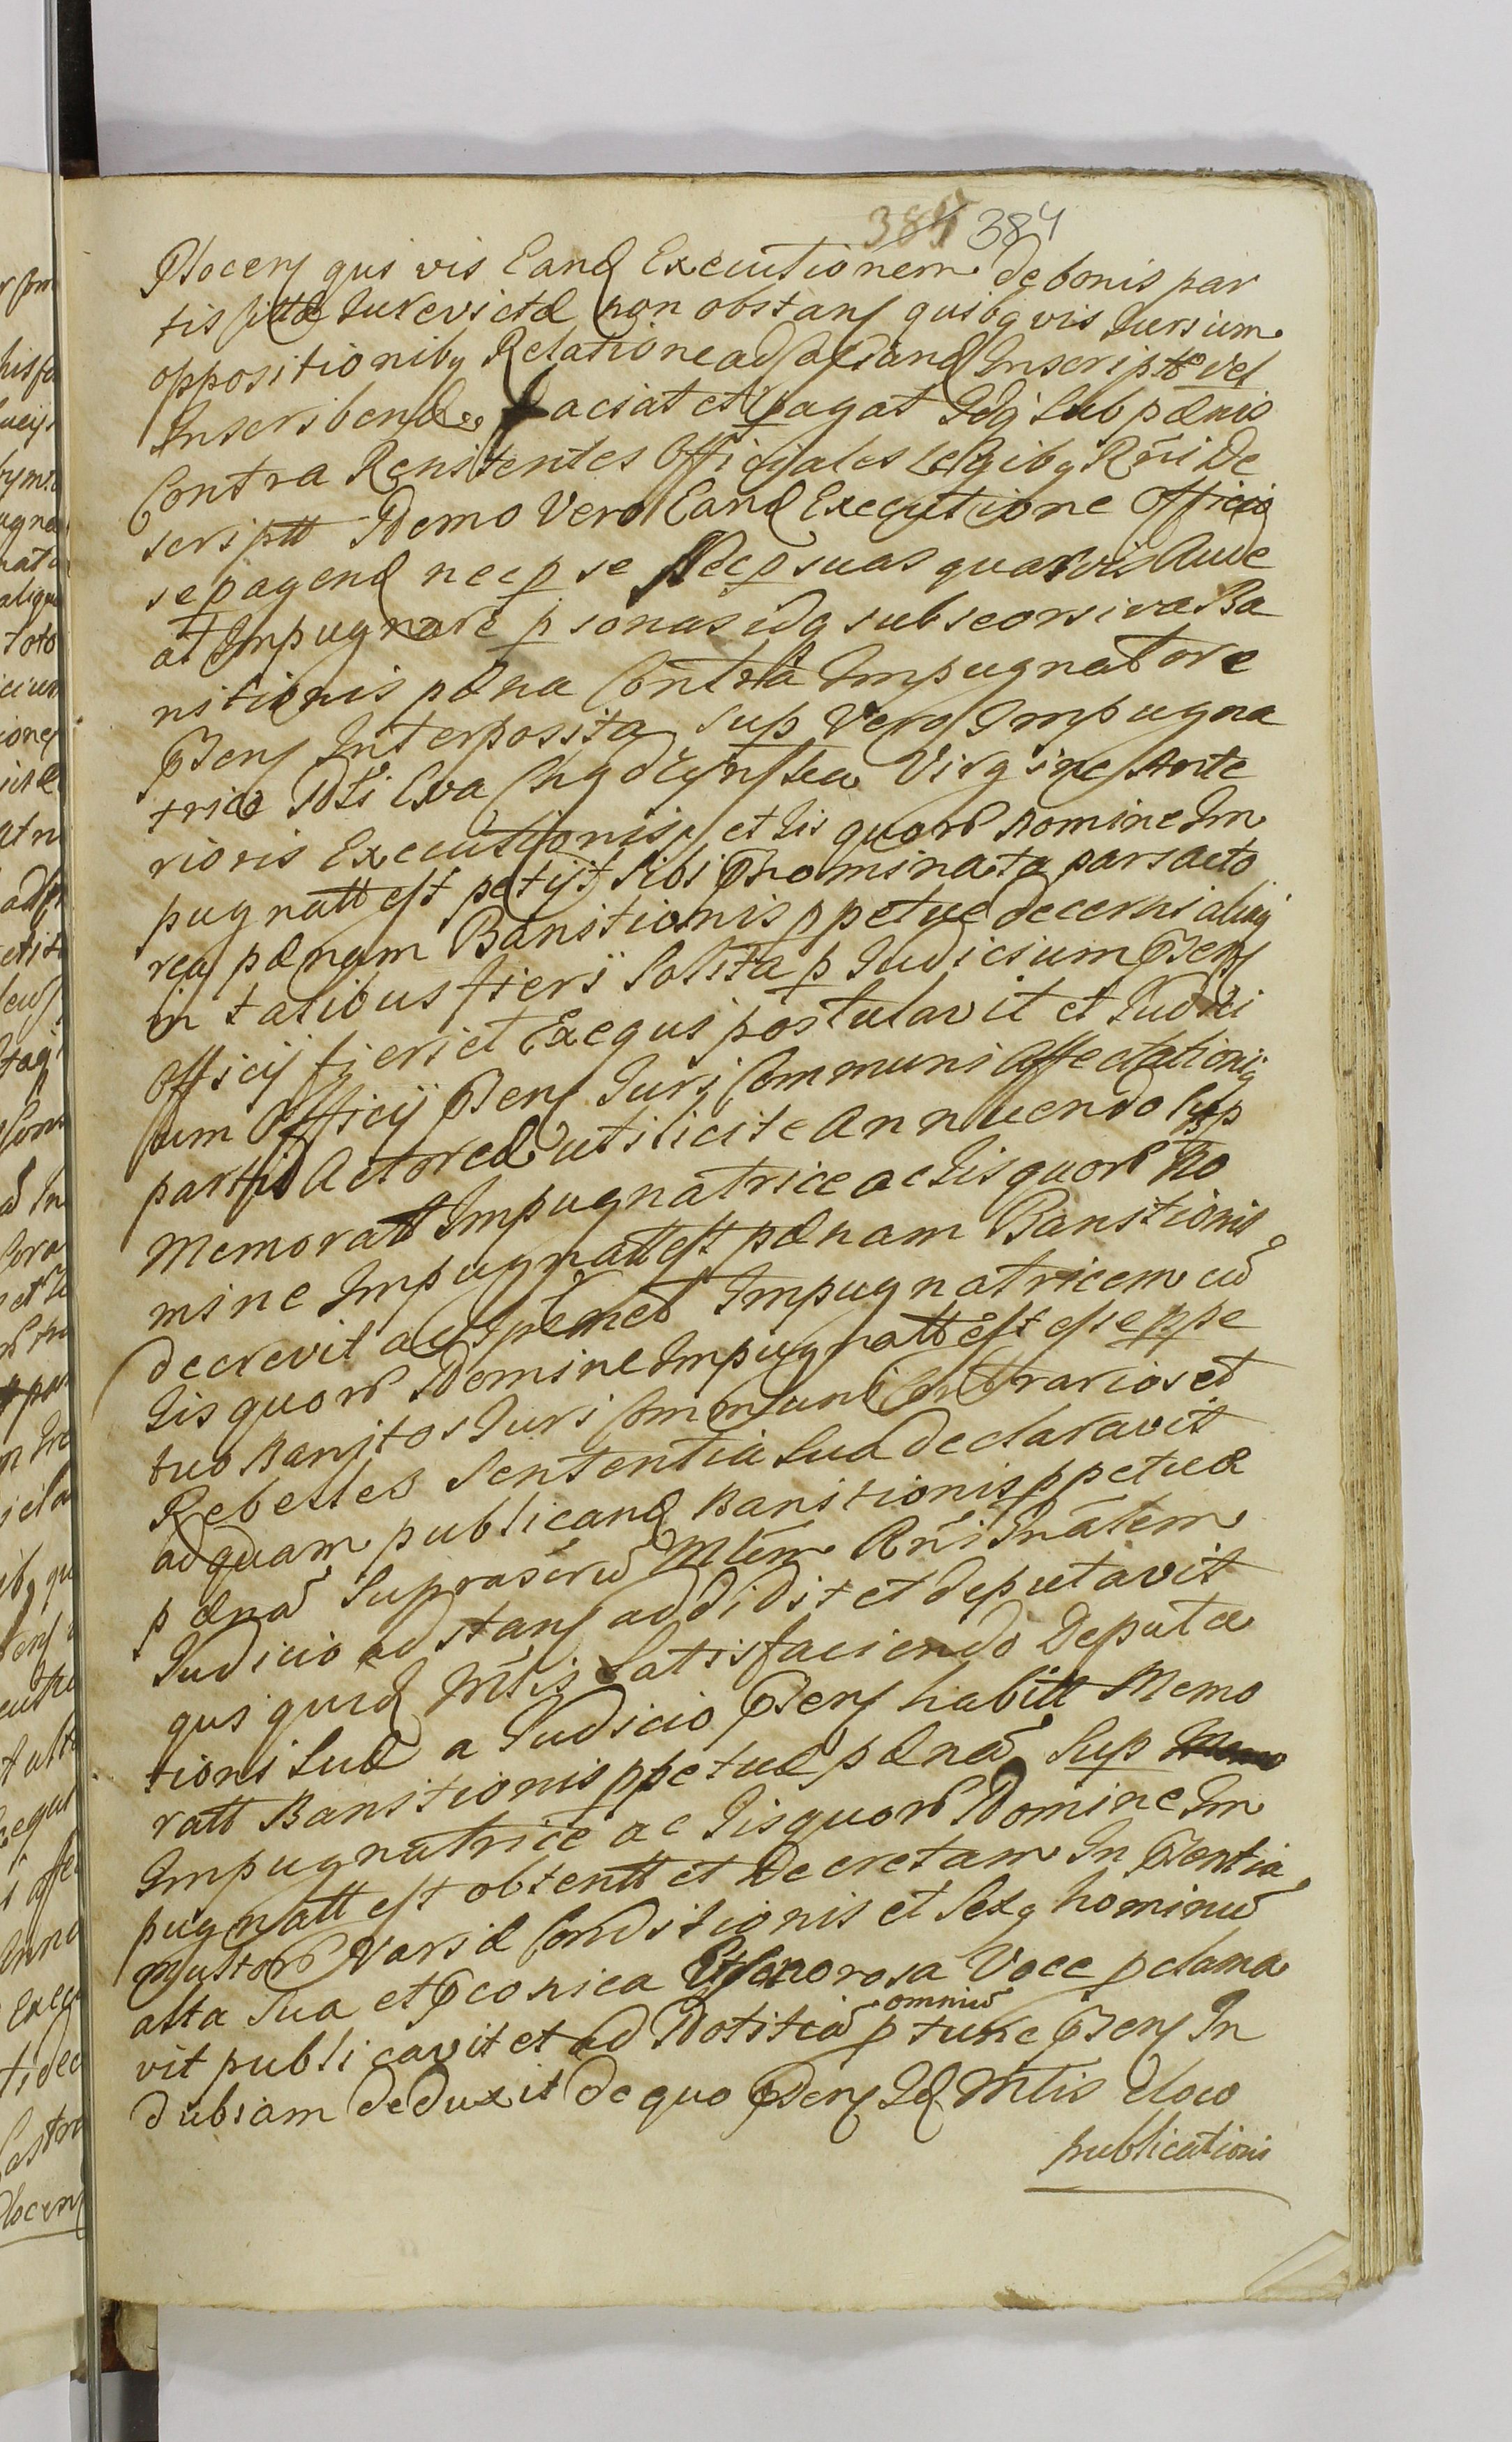 385 384
Plocens quis vis Eand Executionem de bonis par
tis Jure victæ non obstans quibq vis Jurium
oppositionibq Relatione ad Inscriptt vel
Inscribend faciat et pagat Idq sub pænis
Contra Renitentes Officiales Legibq Rni De
scriptt Nemo Vero Eand Executione Officio
se pagend nec p se Nec p suas quasvis Aude
at Impugnare psonas idq sub seorsiva Ba
nitionis pæna Contra Impugnatore
Psens Interposita Sup Vero Impugna
trice Nli Eva Virgine Ante
rioris Executionis et Iis quorū nomine Im
pugnatt est petijt sibi Prominata pars acto
rea pænam Banitionis ppetuæ decerni aliaq
in talibus fieri Solita p Judicium Psens
Officij fieri et Exequi postulavit et Judici
um Officij Psens Juri Communi Affectationiq
partis Actoreæ uti licite Annuendo Sup
Memoratt Impugnatrice ac Iis quorū No
mine Impugnatt est pænam Banitionis
decrevit Impugnatricem cū
Iis quorū Nomine Impugnatt est esse ppe
tuo Banitos Juri Communi Contrarios et
Rebelles Sententia Sua declaravit
ad quam publicand Banitionis ppetuæ
pænā Suprascrū Mlem Rni Gnalem
Judicio adstans addidit et deputavit
qui quid Mlis Satisfaciendo Deputa
tioni Suæ a Judicio Psens habitt Memo
ratt Banitionis ppetuæ pænā Sup
Impugnatrice ac Iis quorū Nomine Im
pugnatt est obtentt et Decretam In Psentia
multorū Variæ Conditionis et Sexq hominū
alta Sua et Pconica Et sonorosa Voce pclama
vit publicavit et ad Notitiā omniū p tunc Psens In
dubiam deduxit de quo Psens Id Mlis eloco
publicationis